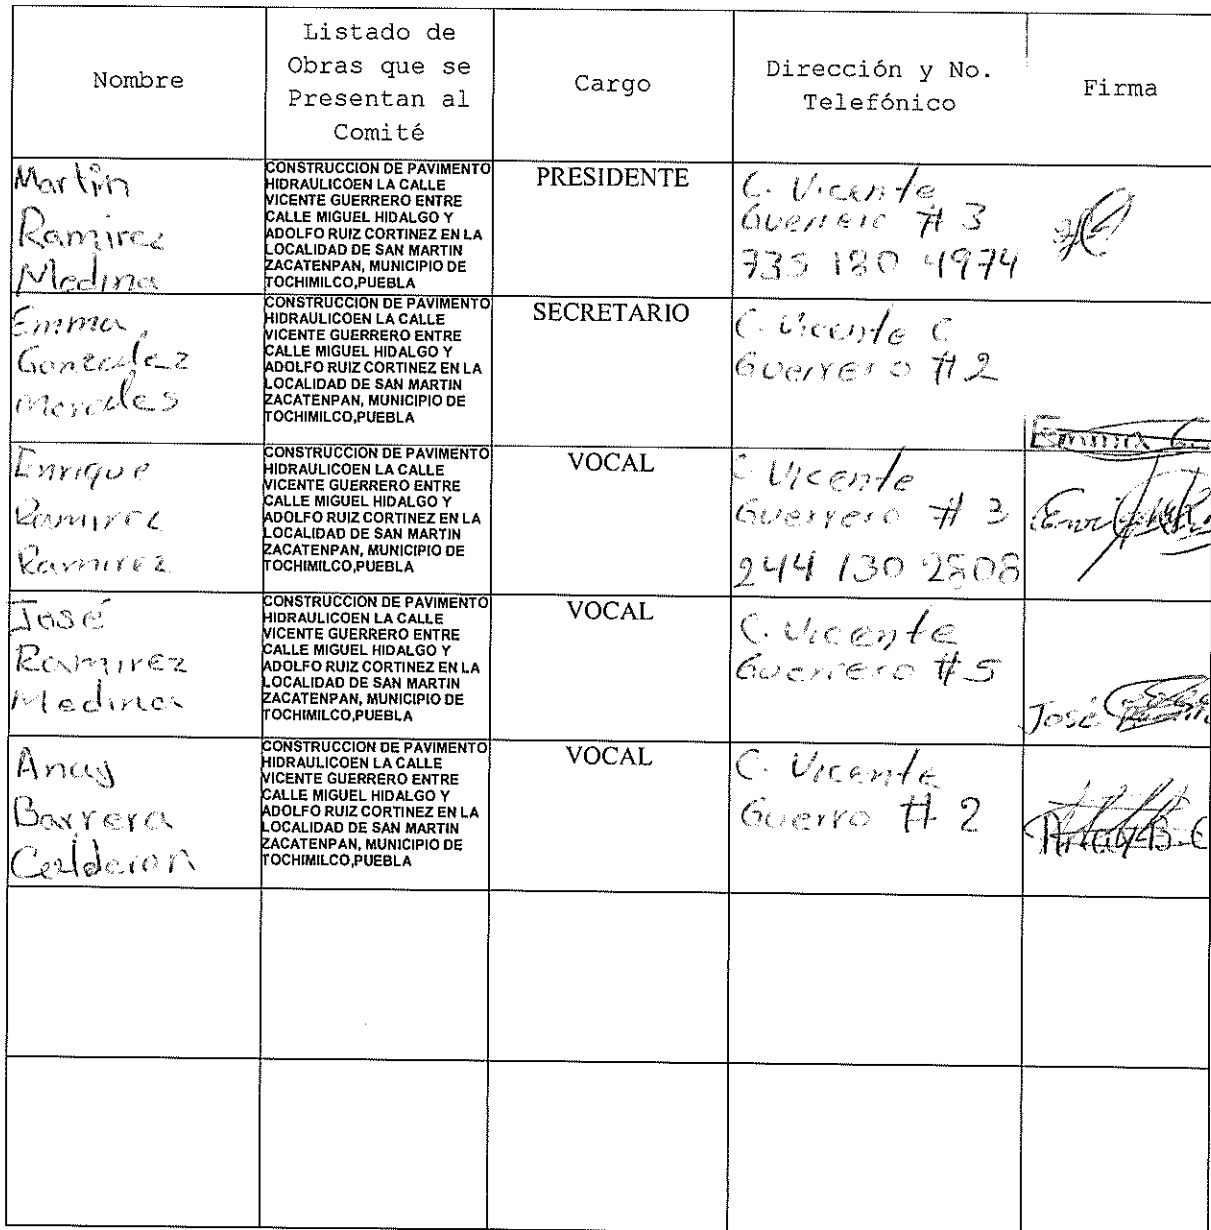 Nombre
Listado de
Obras que se
Presentan al
Comité
Cargo
Dirección y No.
Telefónico
Firma
Martin
Ramirez
Medina
CONSTRUCCION DE PAVIMENTO
HIDRAULICOEN LA CALLE
VICENTE GUERRERO ENTRE
CALLE MIGUEL HIDALGO Y
ADOLFO RUIZ CORTINEZ EN LA
LOCALIDAD DE SAN MARTIN
ZACATENPAN, MUNICIPIO DE
TOCHIMILCO,PUEBLA
PRESIDENTE
C. Vicente
Guerrero # 3
735 180 4974
Emma
Gonzalez
Morales
CONSTRUCCION DE PAVIMENTO
HIDRAULICOEN LA CALLE
VICENTE GUERRERO ENTRE
CALLE MIGUEL HIDALGO Y
ADOLFO RUIZ CORTINEZ EN LA
LOCALIDAD DE SAN MARTIN
ZACATENPAN, MUNICIPIO DE
TOCHIMILCO,PUEBLA
SECRETARIO
C. Vicente C
Guerrero # 2
Emma G.
Enrique
Ramirez
Ramirez
CONSTRUCCION DE PAVIMENTO
HIDRAULICOEN LA CALLE
VICENTE GUERRERO ENTRE
CALLE MIGUEL HIDALGO Y
ADOLFO RUIZ CORTINEZ EN LA
LOCALIDAD DE SAN MARTIN
ZACATENPAN, MUNICIPIO DE
TOCHIMILCO,PUEBLA
VOCAL
C Vicente
Guerrero # 3
244 130 2808
José
Ramirez
Medina
CONSTRUCCION DE PAVIMENTO
HIDRAULICOEN LA CALLE
VICENTE GUERRERO ENTRE
CALLE MIGUEL HIDALGO Y
ADOLFO RUIZ CORTINEZ EN LA
LOCALIDAD DE SAN MARTIN
ZACATENPAN, MUNICIPIO DE
TOCHIMILCO,PUEBLA
VOCAL
C. Vicente
Guerrero # 5
José
Anay
Barrera
Calderon
CONSTRUCCION DE PAVIMENTO
HIDRAULICOEN LA CALLE
VICENTE GUERRERO ENTRE
CALLE MIGUEL HIDALGO Y
ADOLFO RUIZ CORTINEZ EN LA
LOCALIDAD DE SAN MARTIN
ZACATENPAN, MUNICIPIO DE
TOCHIMILCO,PUEBLA
VOCAL
C. Vicente
Guerro # 2
Anay B.C